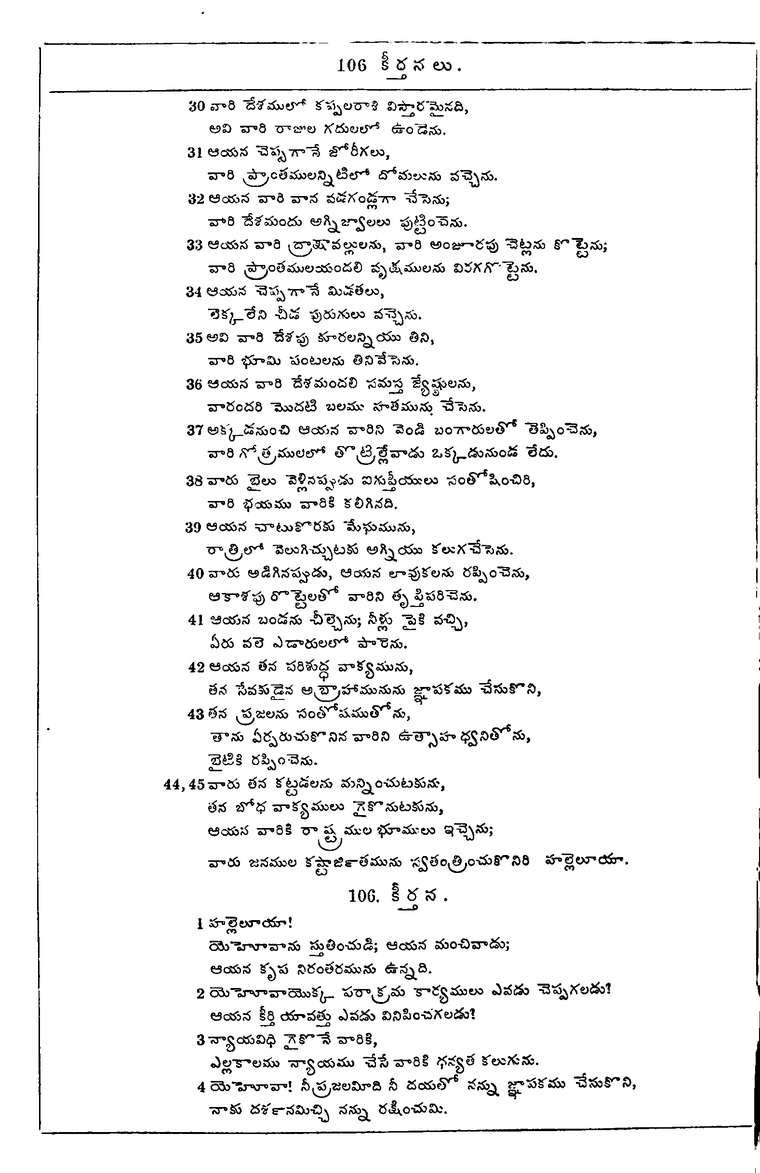 106 కీర్తనలు.
30 వారి దేశములో కప్పలరాశి విస్తారమైనది,
అవి వారి రాజుల గదులలో ఉండెను.
31 ఆయన చెప్పగానే జోరీగలు,
వారి ప్రాంతములన్నిటిలో దోమలును వచ్చెను.
32 ఆయన వారి వాన వడగండ్లగా చేసెను;
వారి దేశమందు అగ్నిజ్వాలలు పుట్టించెను.
33 ఆయన వారి ద్రాక్షావల్లులను, వారి అంజూరపు చెట్లను కొట్టెను;
వారి ప్రాంతములయందలి వృక్షములను విరగగొట్టెను.
34 ఆయన చెప్పగానే మిడతలు,
లెక్కలేని చీడ పురుగులు వచ్చెను.
35 అవి వారి దేశపు కూరలన్నియు తిని,
వారి భూమి పంటలను తినివేసెను.
36 ఆయన వారి దేశమందలి సమస్త జ్యేష్ఠులను,
వారందరి మొదటి బలము హతమును చేసెను.
37 అక్కడనుంచి ఆయన వారిని వెండి బంగారులతో తెప్పించెను,
వారి గోత్రములలో తొట్రిల్లేవాడు ఒక్కడునుండ లేదు.
38 వారు బైలు వెళ్లినప్పుడు ఐగుప్తీయులు సంతోషించిరి,
వారి భయము వారికి కలిగినది.
39 ఆయన చాటుకొరకు మేఘమును,
రాత్రిలో వెలుగిచ్చుటకు అగ్నియు కలుగచేసెను.
40 వారు అడిగినప్పుడు, ఆయన లావుకలను రప్పించెను,
ఆకాశపు రొట్టెలతో వారిని తృప్తిపరిచెను.
41 ఆయన బండను చీల్చెను; నీళ్లు పైకి వచ్చి,
ఏరు వలె ఎడారులలో పారెను.
42 ఆయన తన పరిశుద్ధ వాక్యమును,
తన సేవకుడైన అబ్రాహామునును జ్ఞాపకము చేసుకొని,
43 తన ప్రజలను సంతోషముతోను,
తాను ఏర్పరుచుకొనిన వారిని ఉత్సాహ ధ్వనితోను,
బైటికి రప్పించెను.
44, 45 వారు తన కట్టడలను మన్నించుటకును,
తన బోధ వాక్యములు గైకొనుటకును,
ఆయన వారికి రాష్ట్రముల భూములు ఇచ్చెను;
వారు జనముల కష్టార్జితమును స్వతంత్రించుకొనిరి హల్లెలూయా.
106. కీర్తన.
1 హల్లెలూయా!
యెహోవాను స్తుతించుడి; ఆయన మంచివాడు;
ఆయన కృప నిరంతరమును ఉన్నది.
2 యెహోవాయొక్క పరాక్రమ కార్యములు ఎవడు చెప్పగలడు?
ఆయన కీర్తి యావత్తు ఎవడు వినిపించగలడు?
3 న్యాయవిధి గైకొనే వారికి,
ఎల్లకాలము న్యాయము చేసే వారికి ధన్యత కలుగును.
4 యెహోవా! నీ ప్రజలమీది నీ దయలో నన్ను జ్ఞాపకము చేసుకొని,
నాకు దర్శనమిచ్చి నన్ను రక్షించుమి.